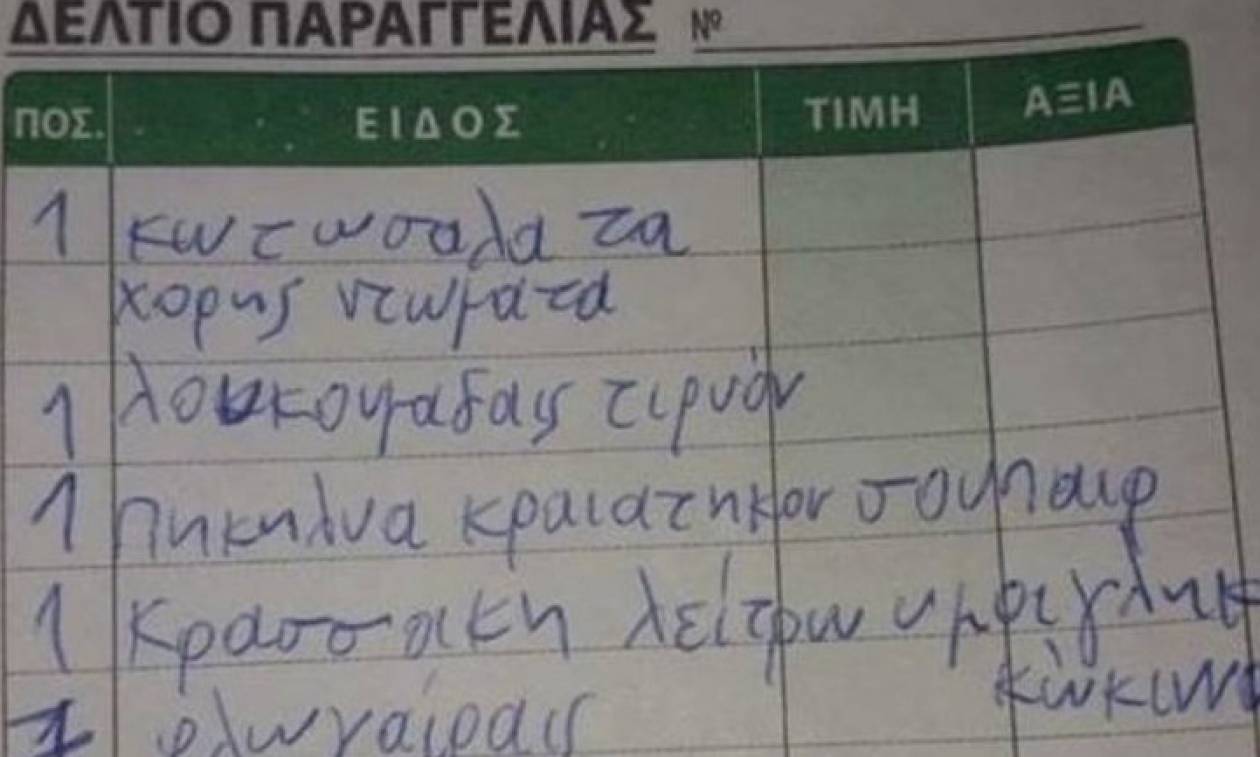 ΔΕΛΤΙΟ ΠΑΡΑΓΓΕΛΙΑΣ Νº
ΠΟΣ. ΕΙΔΟΣ ΤΙΜΗ ΑΞΙΑ
1 κωτωσαλα τα
χορης ντωματα
1 λουκουμαδαις τιρυόν
1 Πηκηλυα κραιατηκον σουπαιρ
1 Κρασσακη λείτρω υμοι γληκ
κώκινω
1 φλωγαίραις